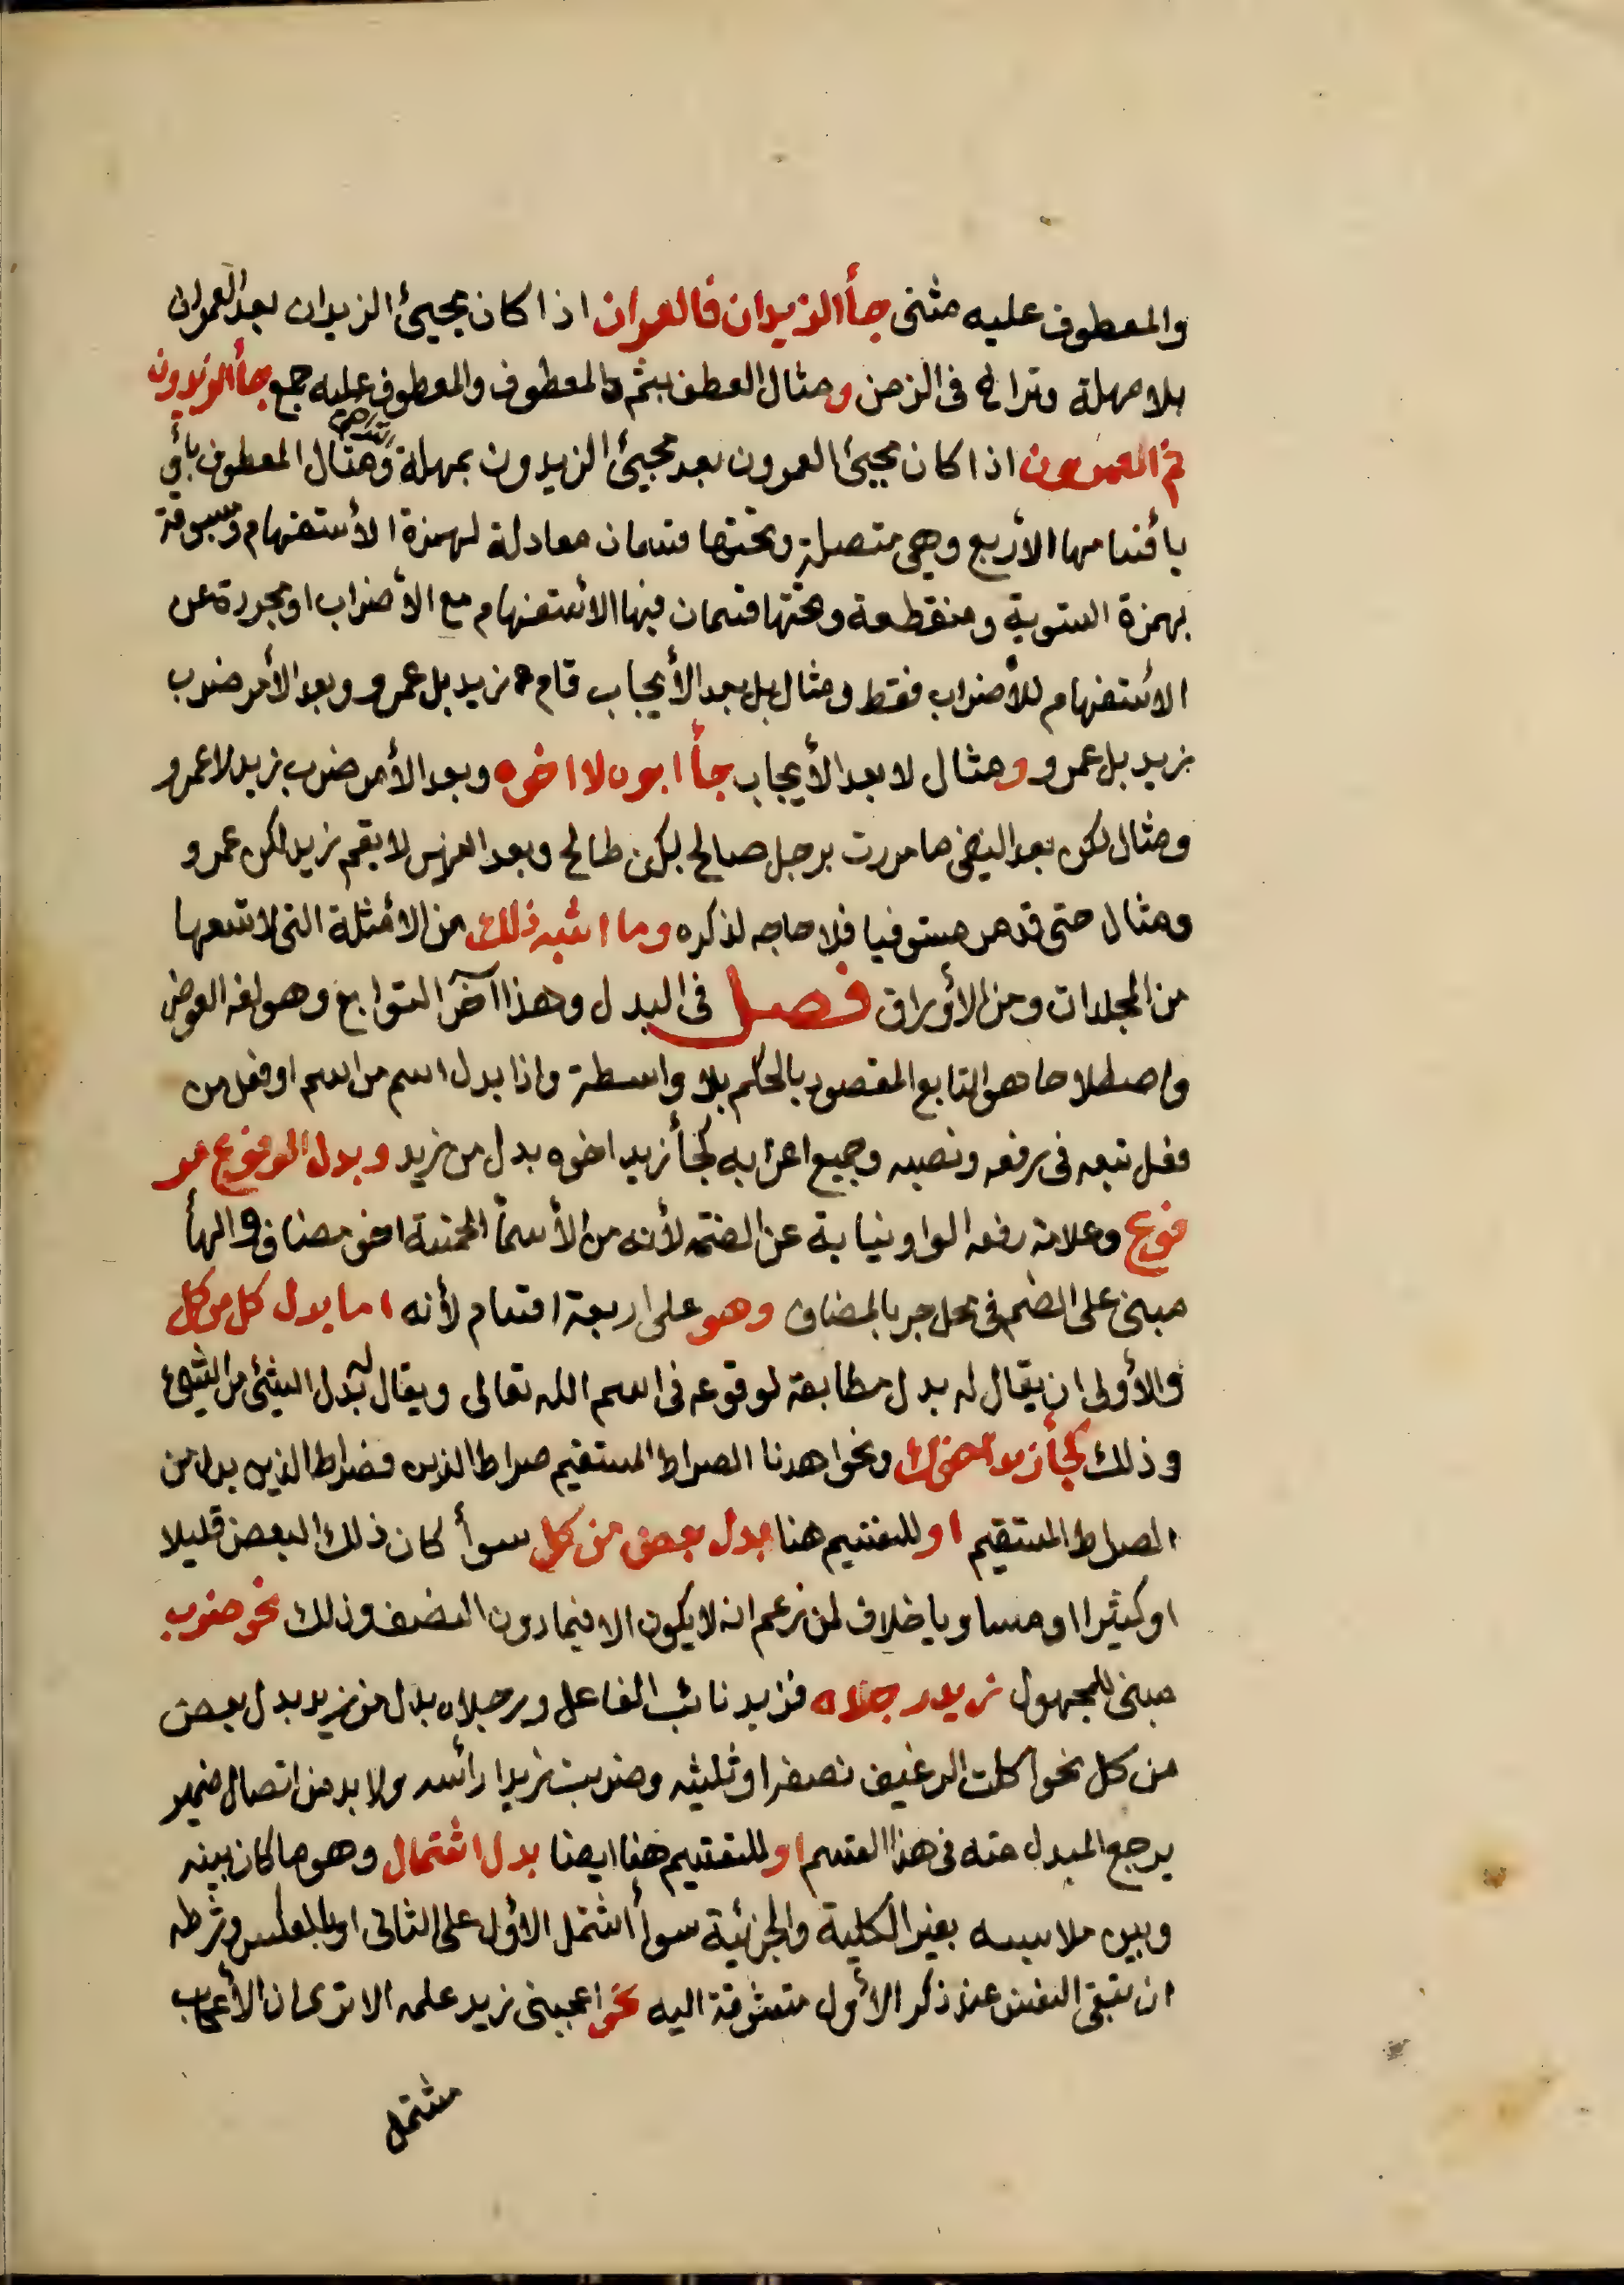 والمعطوف عليه مثنى جأ الزيدان فالعمران اذا كان مجيئ الزيدان بعد العمران
بلا مهلة وتراخ فى الزمن ومثال العطف بثم والمعطوف والمعطوف عليه جمع جأ الزيدون
ثم العمرون اذا كان مجيئ العمرون بعد مجيئ الزيدون بمهلة ومثال المعطوف بأو
بأقسامها الأربع وهى متصلة وتحتها قسمان معادلة لهمزة الأستفهام ومسبوقة
بهمزة التسوية ومنقطعة وتحتها قسمان فيها الأستفهام مع الأضراب او مجردة عن
الأستفهام للأضراب فقط ومثال بل بعد الأيجاب قام زيد بل عمرو وبعد الأمر ضرب
زيد بل عمرو ومثال لا بعد الأيجاب جأ ابوه لا اخوه وبعد الأمر ضرب زيد لا عمرو
ومثال لكن بعد النفى ما مررت برجل صالح لكن طالح وبعد النهى لا يقم زيد لكن عمرو
ومثال حتى قد مر مستوفيا فلا حاجه لذكره وما اشبه ذلك من الأمثلة التى لا تسعها
من المجلدات ومن الأوراق فصل فى البدل وهذا آخر التوابع وهو لغه العوض
واصطلاحا هو التابع المقصود بالحكم بلا واسطة واذا بدل اسم من اسم او فعل من
فعل تبعه فى رفعه ونصبه وجميع اعرابه كجأ زيد اخوه بدل من زيد وبدل المرفوع مر
فوع وعلامة رفعه الواو نيابة عن الضمه لأنه من الأسمأ الخمسة اخو مضاف والهأ
مبنى على الضم فى محل جر بالمضاف وهو على اربعة اقسام لأنه اما بدل كل من كل
والأولى ان يقال له بدل مطابقة لوقوعه فى اسم الله تعالى ويقال له بدل الشئ من الشئ
وذلك كجأ زيد اخوك ونحو اهدنا الصراط المستقيم صراط الذين فصراط الذين بدل من
الصراط المستقيم او للتقسيم هنا بدل بعض من كل سوأ كان ذلك البعض قليلا
او كثيرا او مساويا خلاف لمن زعم انه لا يكون الا فيما دون النصف وذلك نحو ضرب
مبنى للمجهول زيد رجلاه فزيد نائب الفاعل ورجلاه بدل من زيد بدل بعض
من كل نحو اكلت الرغيف نصفه او ثليثه وضربت زيدا رأسه ولا بد من اتصال ضمير
يرجع المبدل منه فى هذا القسم او للتقسيم هنا ايضا بدل اشتمال وهو ما كان بينه
وبين ملابسه بغير الكلية والجزئية سوأ اشتمل الأول على الثانى او بالعكس وشرطه
ان تبقى النفس عند ذكر الأول متشوقة اليه نحو اعجبنى زيد علمه الا ترى ان الأعجاب
مشتمل